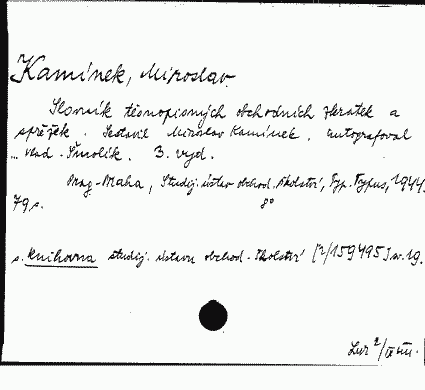 Kamínek, Miroslav.
Slovník těsnopisných obchodních zkratek a
spřežek. Sestavil Miroslav Kamínek, autografoval
... Vlad. Šmolík. 3. vyd.
Prag-Praha, Studij. ústav obchod. školství, Typ. Typus, 1944.
79 s. 8°
s. Knihovna studij. ústavu obchod. školství [2/159495] sv. 19.